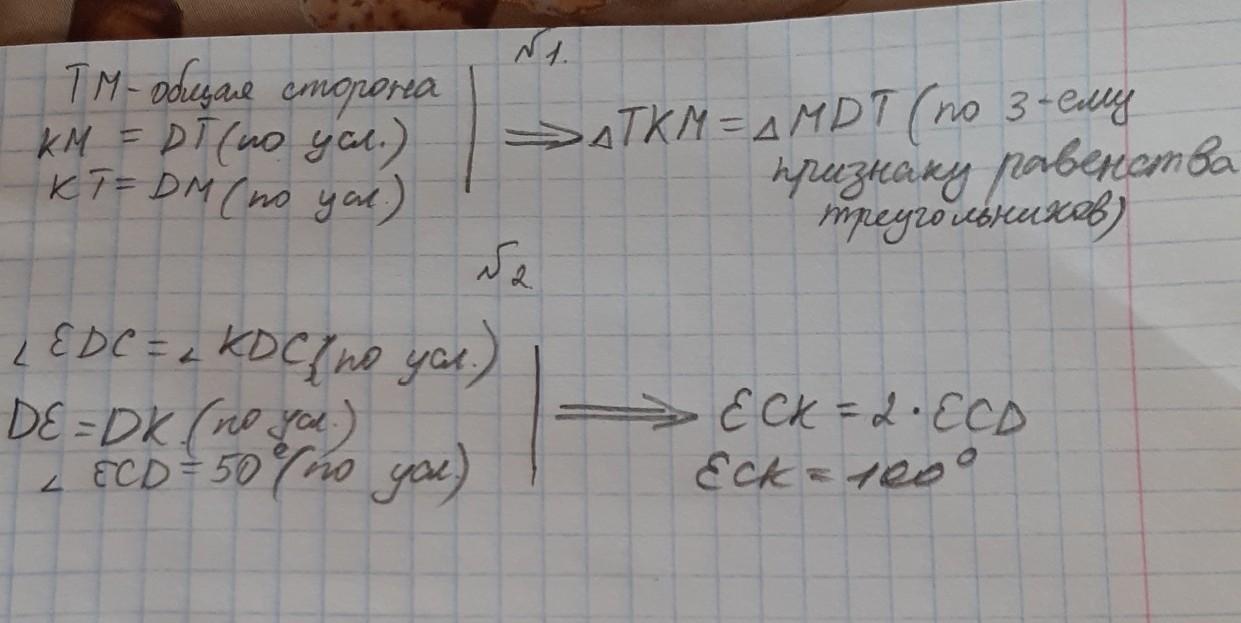 №1.
TM - общая сторона
KM = DT (по усл.)
KT = DM (по усл.)
⟹ △TKM = △MDT (по 3-ему
признаку равенства
треугольников)
№2
∠EDC = ∠KDC (по усл.)
DE = DK (по усл.)
∠ECD = 50° (по усл.)
⟹ ECK = 2 · ECD
ECK = 100°